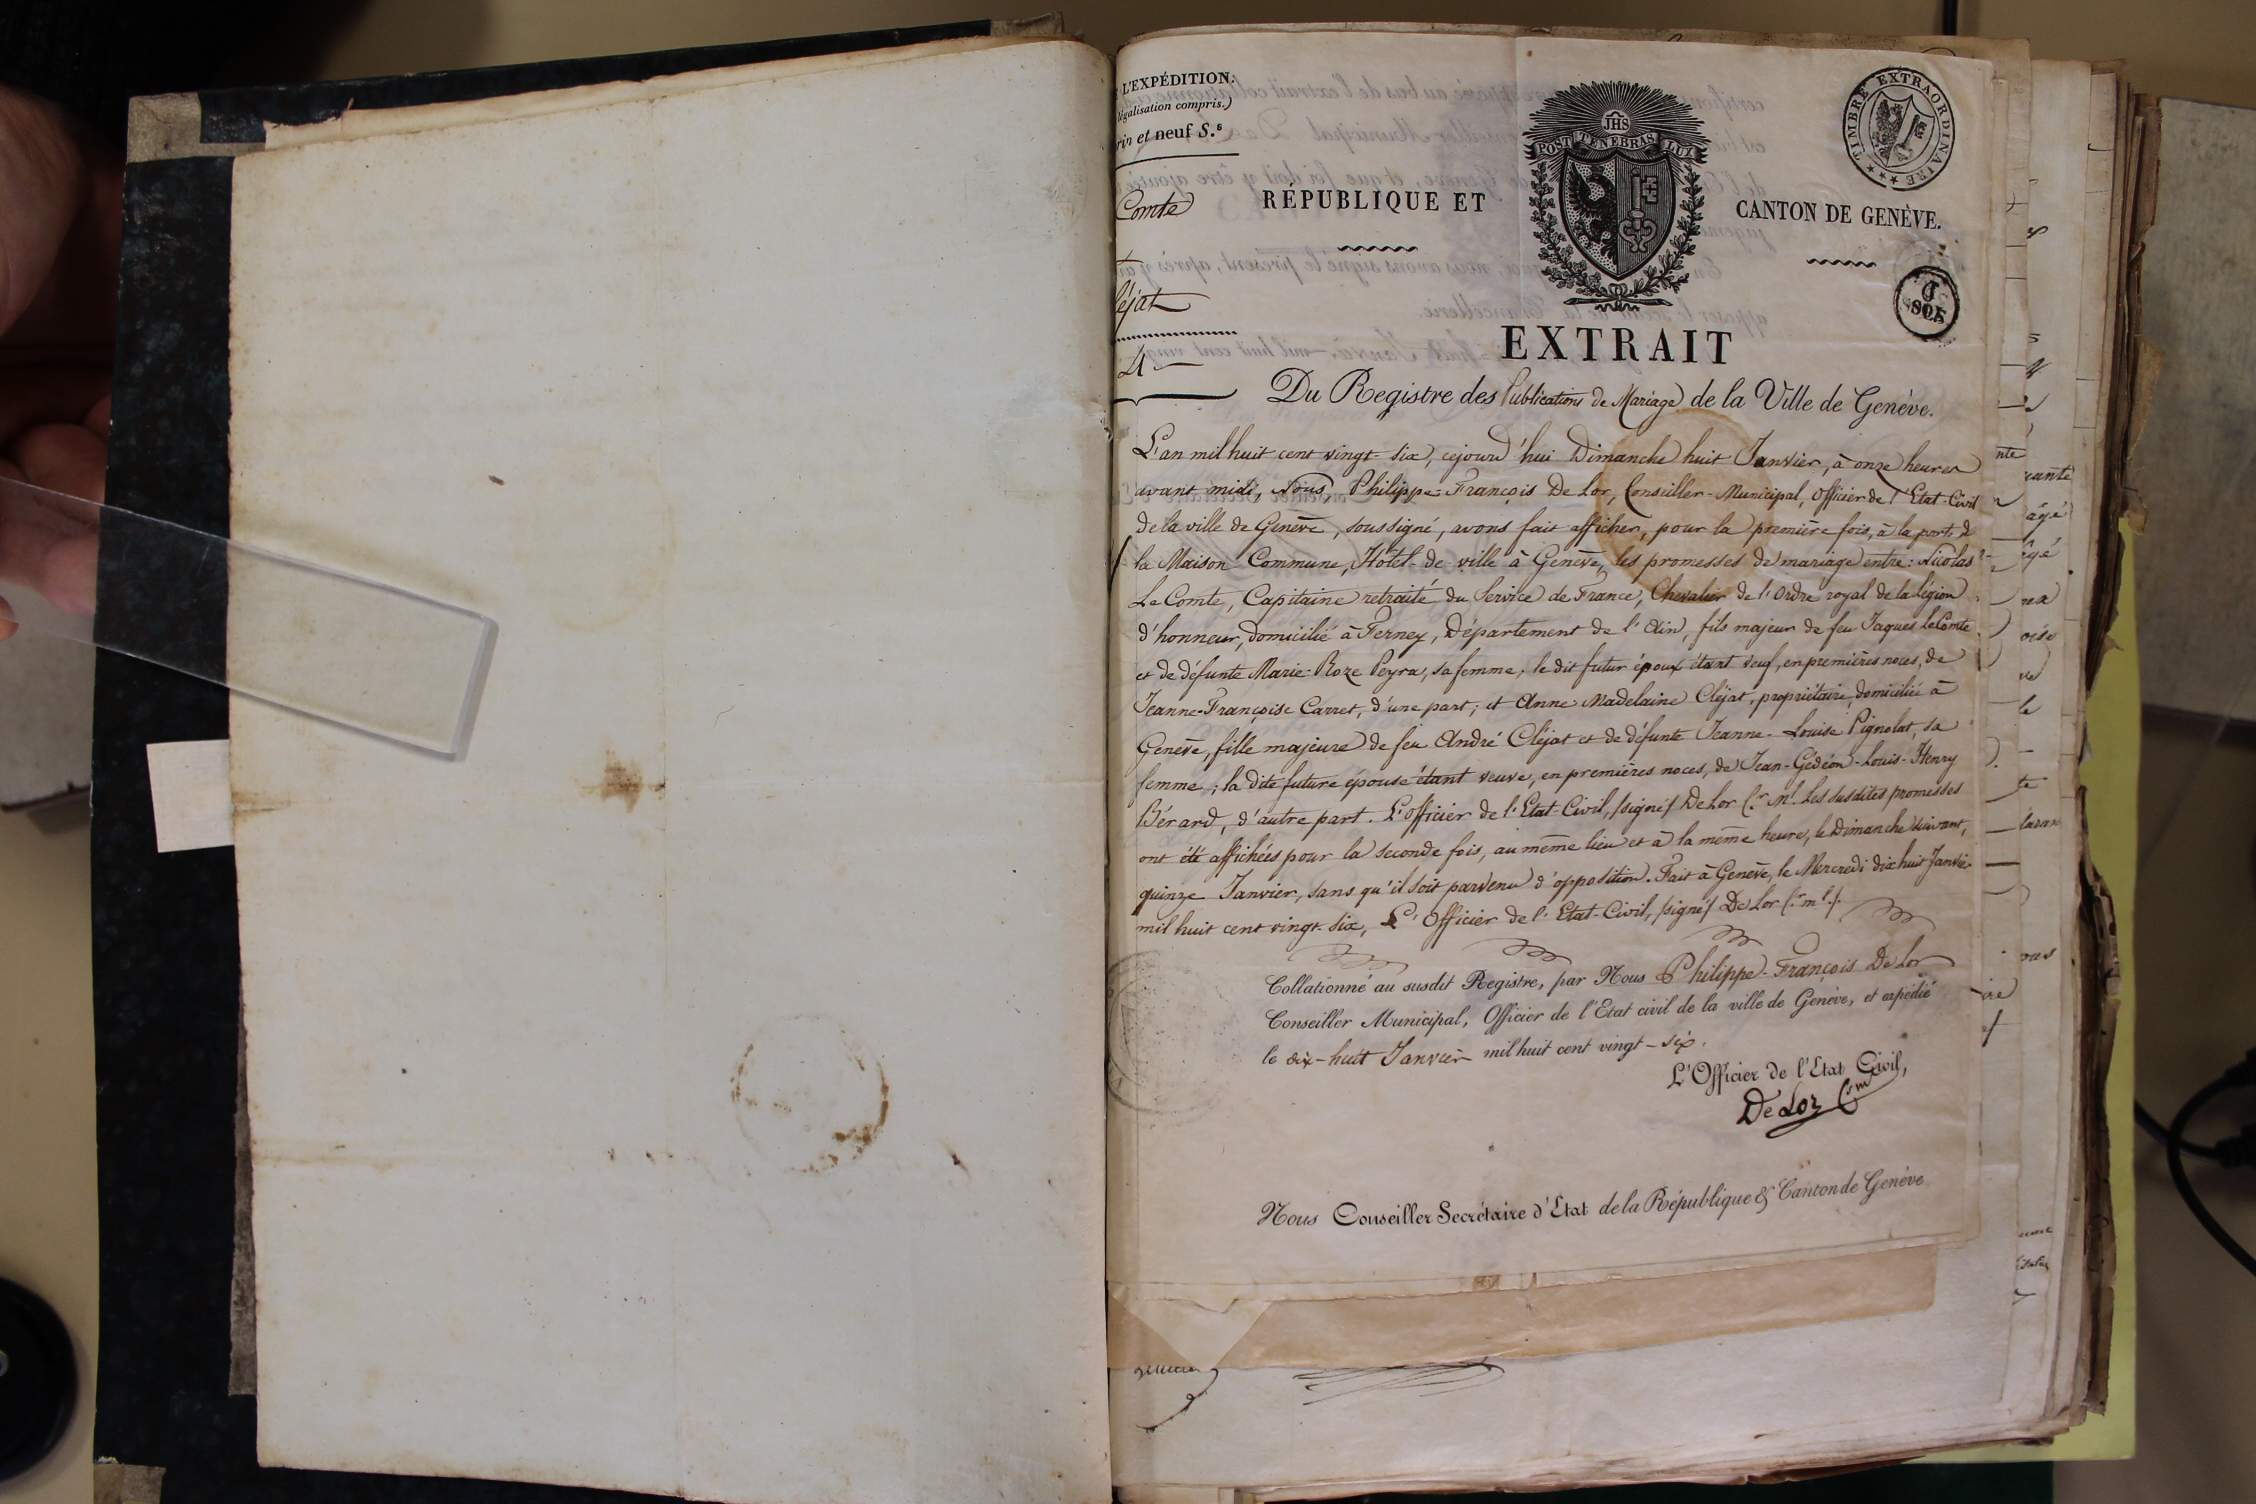 L'EXPÉDITION.
légalisation compris.)
et neuf S.s
Comte
RÉPUBLIQUE ET
JHS
POST TENEBRAS LUX
CANTON DE GENÈVE.
TIMBRE EXTRAORDINAIRE
6 SOLS
EXTRAIT
Du Registre des Publications de Mariage de la Ville de Genève.
L'an mil huit cent vingt-six, cejourd'hui Dimanche huit Janvier, à onze heures
avant midi, Nous, Philippe-François De Lor, Conseiller-Municipal, Officier de l'Etat-Civil
de la ville de Genève, soussigné, avons fait afficher, pour la première fois, à la porte de
la Maison Commune, Hôtel-de-ville à Genève, les promesses de mariage entre: Nicolas
Le Comte, Capitaine retraité du Service de France, Chevalier de l'Ordre royal de la légion
d'honneur, domicilié à Ferney, Département de l'Ain, fils majeur de feu Jaques LeComte
et de défunte Marie-Roze Peyra, sa femme, le dit futur époux étant veuf, en premières noces, de
Jeanne-Françoise Carret, d'une part; et Anne Madelaine Cléjat, propriétaire, domiciliée à
Genève, fille majeure de feu André Cléjat et de défunte Jeanne-Louise Pignolat, sa
femme; la dite future épouse étant veuve, en premières noces, de Jean-Gédéon-Louis-Henry
Bérard, d'autre part. L'officier de l'Etat-Civil, /signé/ De Lor C.r m.l Les susdites promesses
ont été affichées pour la seconde fois, au même lieu et à la même heure, le Dimanche suivant,
quinze Janvier, sans qu'il soit parvenu d'opposition. Fait à Genève, le Mercredi dix huit Janvier
mil huit cent vingt-six, L'Officier de l'Etat-Civil, /signé/ De Lor C.r m.l /.
Collationné au susdit Registre, par Nous Philippe-François De Lor
Conseiller Municipal, Officier de l'Etat civil de la ville de Genève, et expédié
le dix-huit Janvier mil huit cent vingt-six.
L'Officier de l'Etat Civil,
De Lor C.r m
Nous Conseiller Secrétaire d'Etat de la République & Canton de Genève